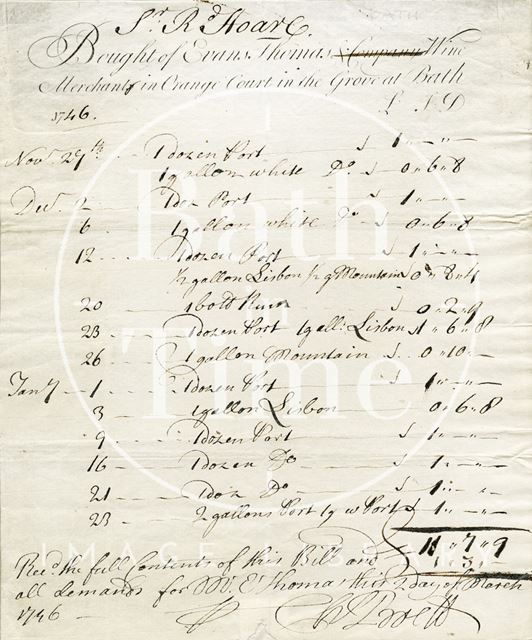 Sr. Rd Hoare.
Bought of Evans Thomas & Company Wine
Merchants in Orange Court in the Grove at Bath
1746. L S D
Novr. 29th 1 dozen Port 1 " — " —
1 gallon white Do 0 " 6 " 8
Decr. 2 1 doz Port 1 " — " —
6 1 gallon white Do 0 " 6 " 8
12 1 dozen Port 1 " — " —
1/2 gallon Lisbon 1/2 g Mountain 0 " 8 " 4
20 1 bottl Rum 0 " 2 " 9
23 1 dozen Port 1 gall: Lisbon 1 " 6 " 8
26 1 gallon Mountain 0 " 10 " —
Jany 1 1 dozen Port 1 " — " —
3 1 gallon Lisbon 0 " 6 " 8
9 1 dozen Port 1 " — " —
16 1 dozen Do 1 " — " —
21 1 doz Do 1 " — " —
23 2 gallons Port 1 g w Port 1 " — " —
11 " 7 " 9
Recd. the full Contents of this Bill and
all demands for Mr. E Thomas this 2 day of March
1746
Bath
in
Time
IMAGE LIBRARY